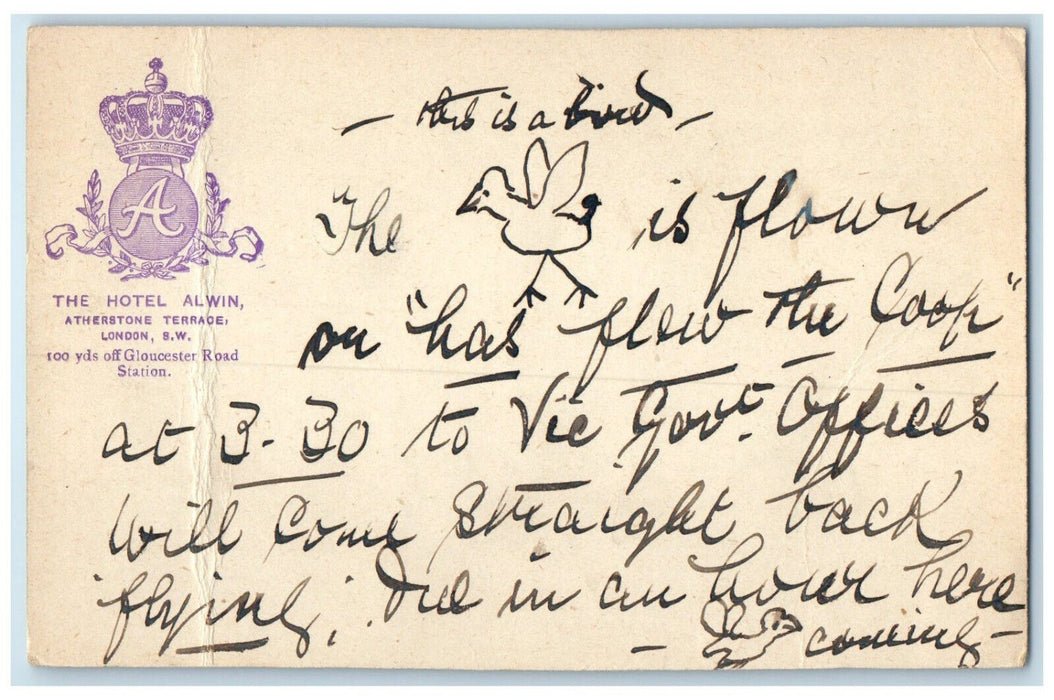 A
THE HOTEL ALWIN,
ATHERSTONE TERRACE,
LONDON, S.W.
100 yds off Gloucester Road
Station.
– this is a bird –
The is flown
or "has flew the Coop"
at 3-30 to Vic Govt. Offices
will come straight back
'flying'. Due in an hour here
– coming –